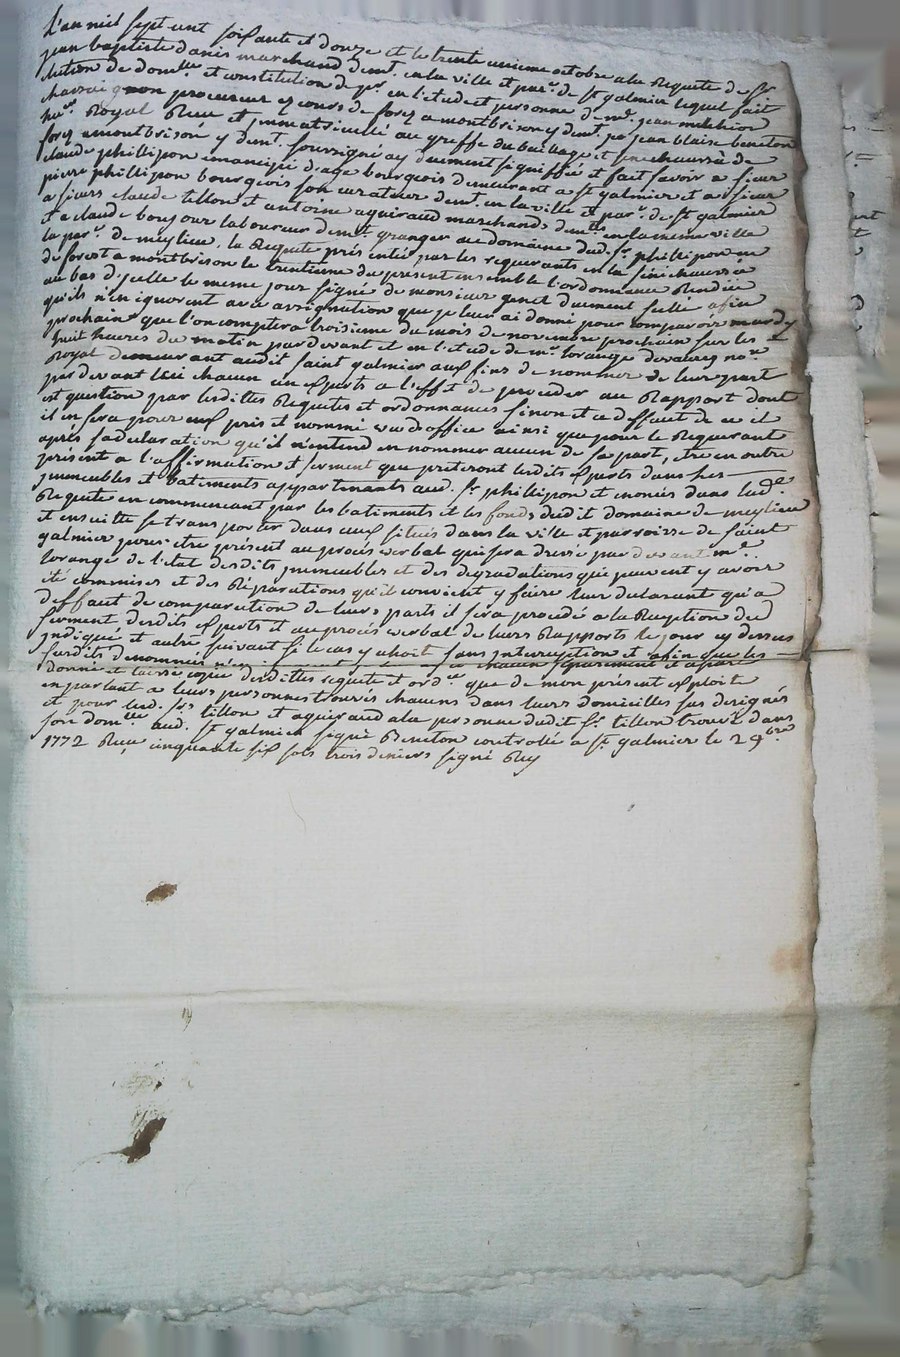 L'an mil sept cent soixante et douze et le trente unieme octobre a la Requete de sr
jean baptiste danis marchand demt. en la ville et par. de st galmier lequel fait
election de domlle et constitution de pr. en l'etude et personne de me. jean melchior
chassaignon procureur es cours de forez a montbrison y demt. je jean blaise beneton
huer Royal Reçu et immatriculé au greffe du bailliage et senechaussée de
forez a montbrison y demt. soussigné ay duement signiffié et fait savoir a sieur
claude phillipon emancipé d'age bourgeois demeurant a st galmier et a sieur
pierre phillipon bourgeois son curateur demt. en la ville et par. de st galmier
a sieurs claude tillon et antoine aguiraud marchands demts. en la meme ville
et a claude boujour laboureur demt. granger au domaine dud. sr. phillipon en
la par. de meylieu, la Requete présentée par les requerants en la sénéchaussée
de forest a montbrison le trentieme du present ensemble l'ordonnance Rendue
au bas d'icelle le meme jour signé de monsieur genet duement scellé afin
qu'ils n'en ignorent avec assignation que je leur ai donné pour comparoir mardy
prochain que l'on comptera troisieme du mois de novembre prochain sur les
huit heures du matin pardevant et en l'etude de me. lorange devaluy nore
Royal demeurant audit saint galmier aux fins de nommer de leur part
pardevant lui chacun un experts a l'effet de proceder au Rapport dont
est question par lesdittes Requetes et ordonnances sinon et a deffaut de ce il
il en sera pour eux pris et nommé un d'office ainsi que pour le Requerant
après sa declaration qu'il n'entend en nommer aucun de sa part, etre en outre
présent a l'affirmation et serment que preteront lesdits experts dans les
immeubles et batiments appartenants aud. sr. phillipon et enoncés dans lade
Requete en commencant par les batiments et les fonds dudit domaine de meylieu
et ensuitte se transporter dans ceux situés dans la ville et parroisse de saint
galmier pour etre présent au procés verbal qui sera dressé par devant me.
lorange de l'etat desdits immeubles et des degradations qui peuvent y avoir
été commises et des Réparations qu'il convient y faire leur declarant qu'a
deffaut de comparution de leurs parts il sera procédé a la Reception du
serment desdits experts et au procés verbal de leurs Rapports le jour cy dessus
indiqué et autre suivant si le cas y échoit sans interruption et afin que les
susdits denommés n'en ignorent je leur ai a chacun séparement et a part
donné et laissé copie desdittes requete et ordce que de mon présent exploit
en parlant a leurs personnes trouvés chacuns dans leurs domicilles sus designés
et pour lesd. srs tillon et aguiraud a la personne dudit sr. tillon trouvé dans
son domlle aud. st galmier signé Beneton controllé a st galmier le 2 9bre
1772 Reçu cinquante six sols trois deniers signé Rey